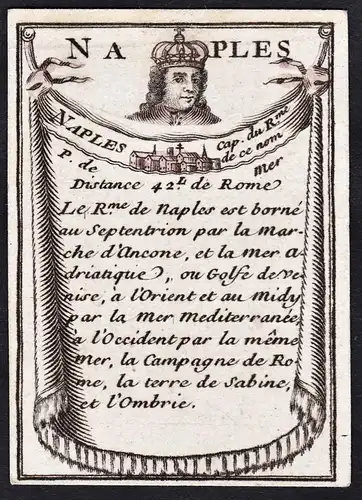 NAPLES
NAPLES Cap. du R.me
P. de de ce nom
Mer
Distance 42 ₶ de Rome
Le R.me de Naples est borné
au Septentrion par la Mar-
che d'Ancone, et la Mer a
driatique, ou Golfe de ve
nise, a l'Orient et au Midy
par la Mer Mediterranée,
à l'Occident par la même
Mer, la Campagne de Ro
me, la terre de Sabine,
et l'Ombrie.